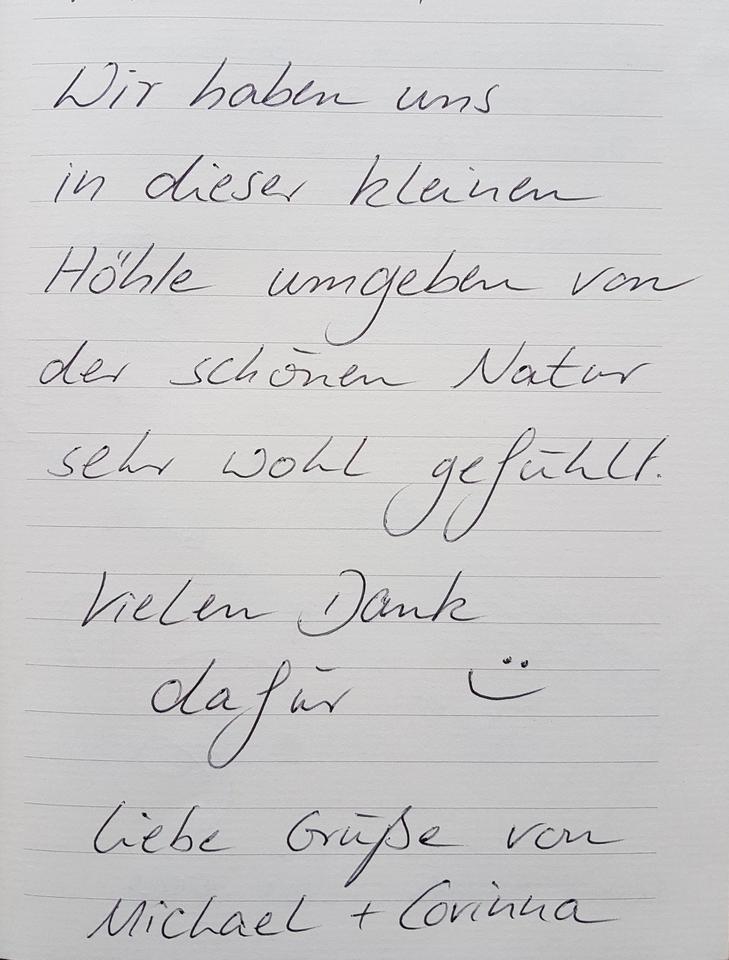 Wir haben uns
in dieser kleinen
Höhle umgeben von
der schönen Natur
sehr wohl gefühlt.
Vielen Dank
dafür
liebe Grüße von
Michael + Corinna